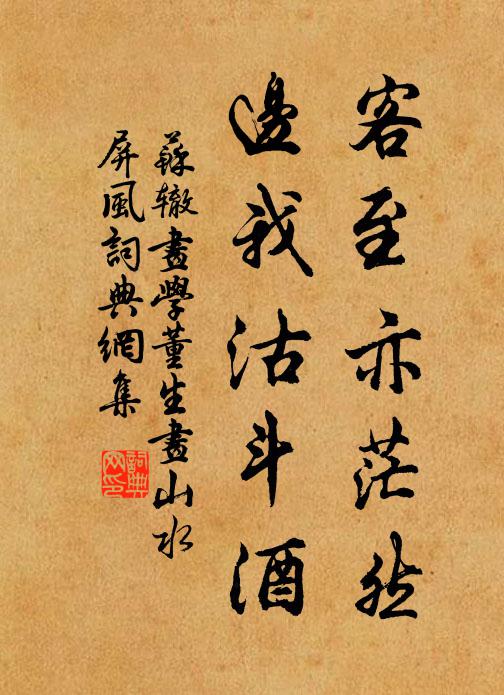 客至亦茫然
邊我沽斗酒
蘇辙畫學董生畫山水
屏風詞典網集
詞典
网印